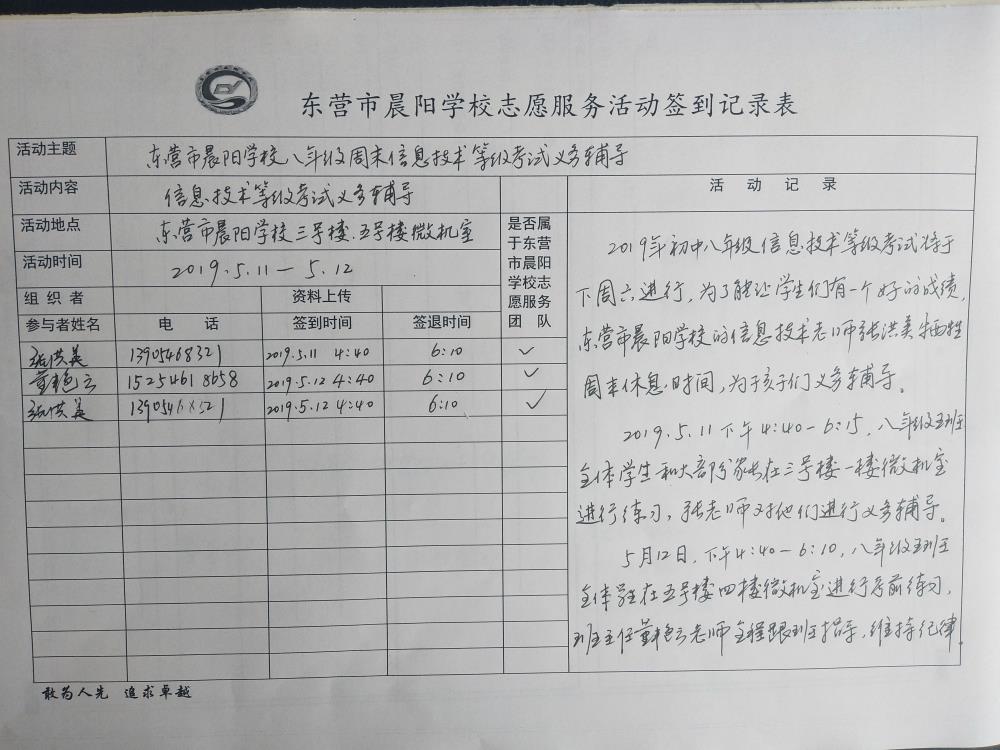 东营市晨阳学校志愿服务活动签到记录表
活动主题 东营市晨阳学校八年级周末信息技术等级考试义务辅导
活动内容 信息技术等级考试义务辅导
活动地点 东营市晨阳学校三号楼.五号楼微机室
活动时间 2019.5.11—5.12
是否属
于东营
市晨阳
学校志
愿服务
团 队
组 织 者 资料上传
参与者姓名 电 话 签到时间 签退时间
张洪美 13905468321 2019.5.11 4:40 6:10 ✓
董艳云 15254618658 2019.5.12 4:40 6:10 ✓
张洪美 2019.5.12 4:40 6:10 ✓
活 动 记 录
2019年初中八年级信息技术等级考试将于
下周六进行,为了能让学生们有一个好的成绩,
东营市晨阳学校的信息技术老师张洪美牺牲
周末休息时间,为孩子们义务辅导。
2019.5.11下午4:40-6:15,八年级五班
全体学生和大部分家长在三号楼一楼微机室
进行练习,张老师对他们进行义务辅导。
5月12日,下午4:40-6:10,八年级五班
全体学生在五号楼四楼微机室进行考前练习,
班主任董艳云老师全程跟班指导,维持纪律.
敢为人先 追求卓越